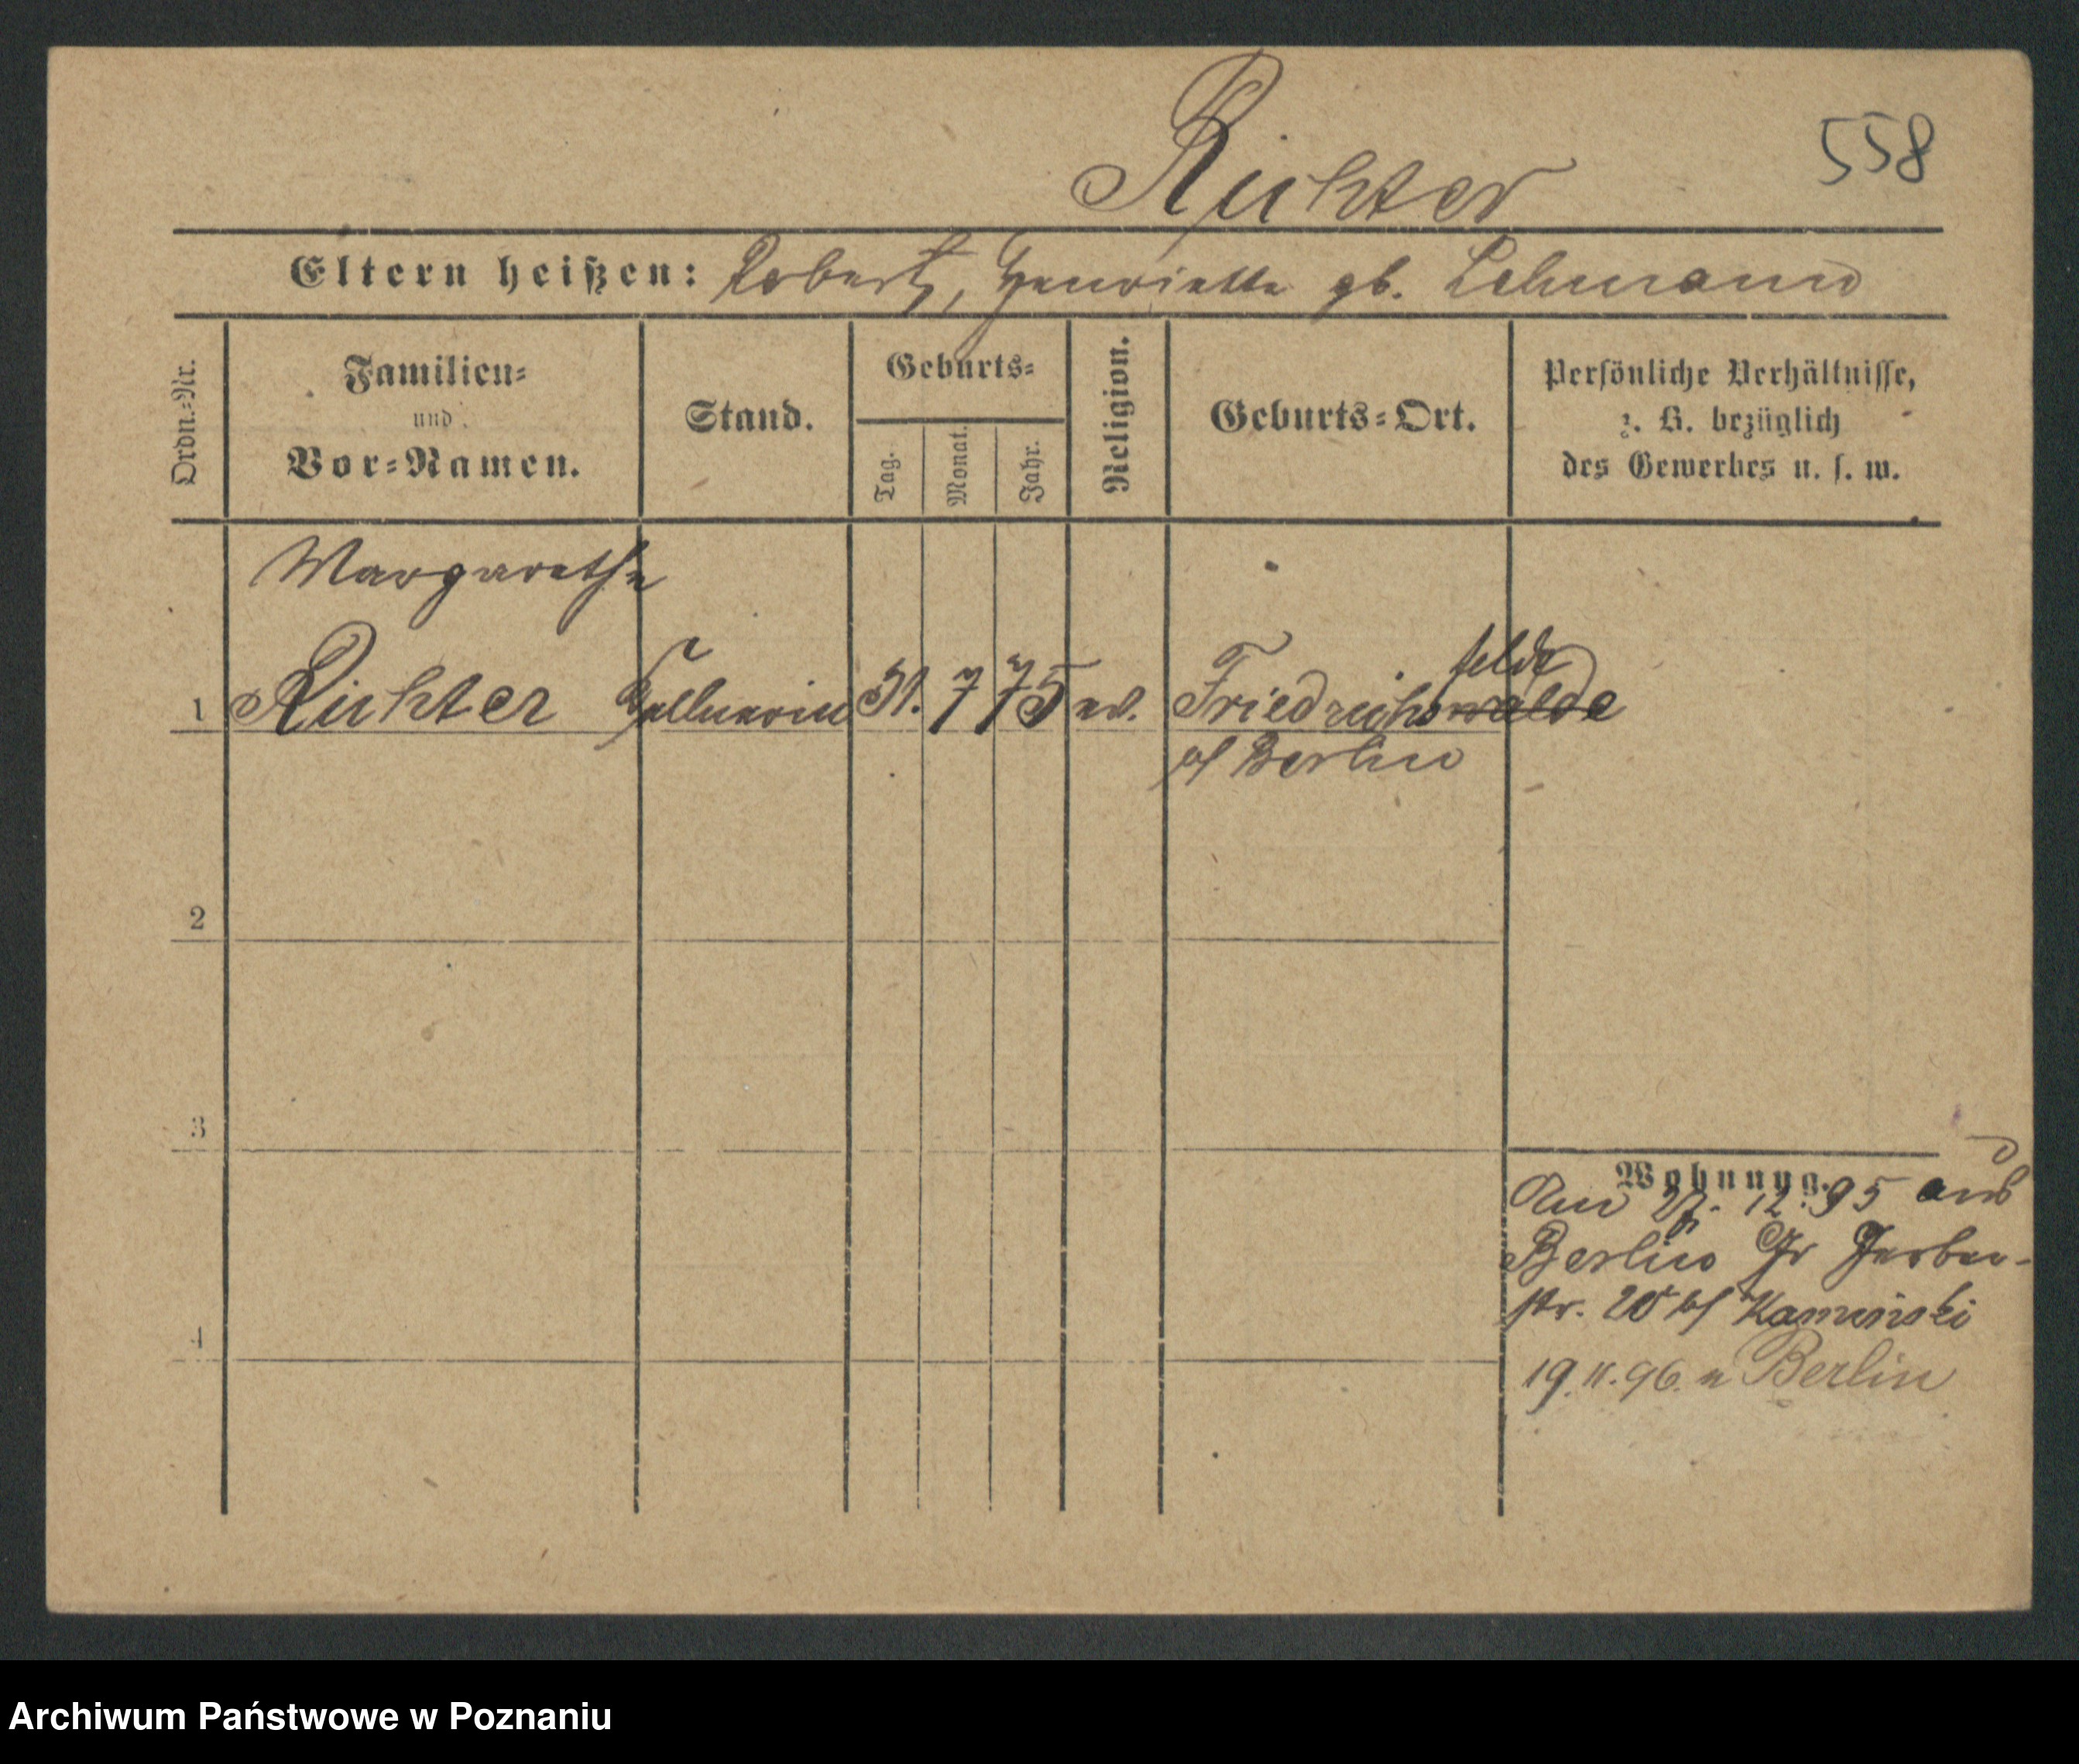 Richter
558
Eltern heißen: Robert, Henriette gb. Lehmann
Ordn.-Nr.
Familien-
und
Vor-Namen.
Stand.
Geburts-
Tag.
Monat.
Jahr.
Religion.
Geburts-Ort.
Persönliche Verhältnisse,
z. B. bezüglich
des Gewerbes u. s. w.
Margarethe
felde
1 Richter Kellnerin 31. 7 75 ev. Friedrichswalde
b/ Berlin
2
3
4
Wohnung.
Am 27. 12. 95 aus
Berlin Gr Gerber-
str. 20 b/ Kaminski
19. 11. 96. n Berlin
Archiwum Państwowe w Poznaniu